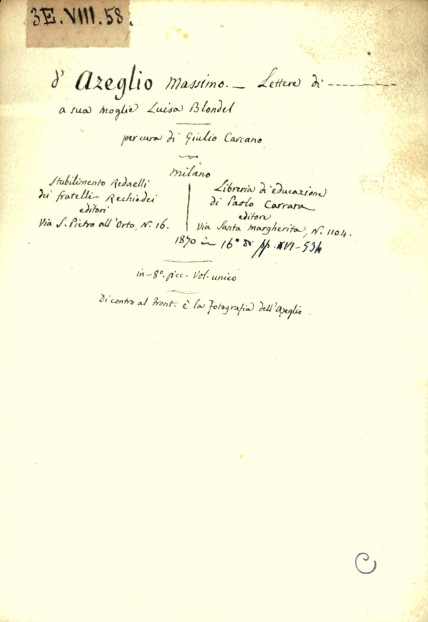 3E.VIII.58.
d' Azeglio Massimo. — Lettere di
a sua moglie Luisa Blondel
per cura di Giulio Carcano
Milano
Stabilimento Redaelli
dei fratelli Rechiedei
editori
Via S. Pietro all'Orto, N. 16.
Libreria di educazione
di Paolo Carrara
editore
Via Santa Margherita, N. 1104.
1870 in 16° pp. XVI-534
in-8° picc. Vol. unico
Di contro al Front. è la fotografia dell'Azeglio.
C